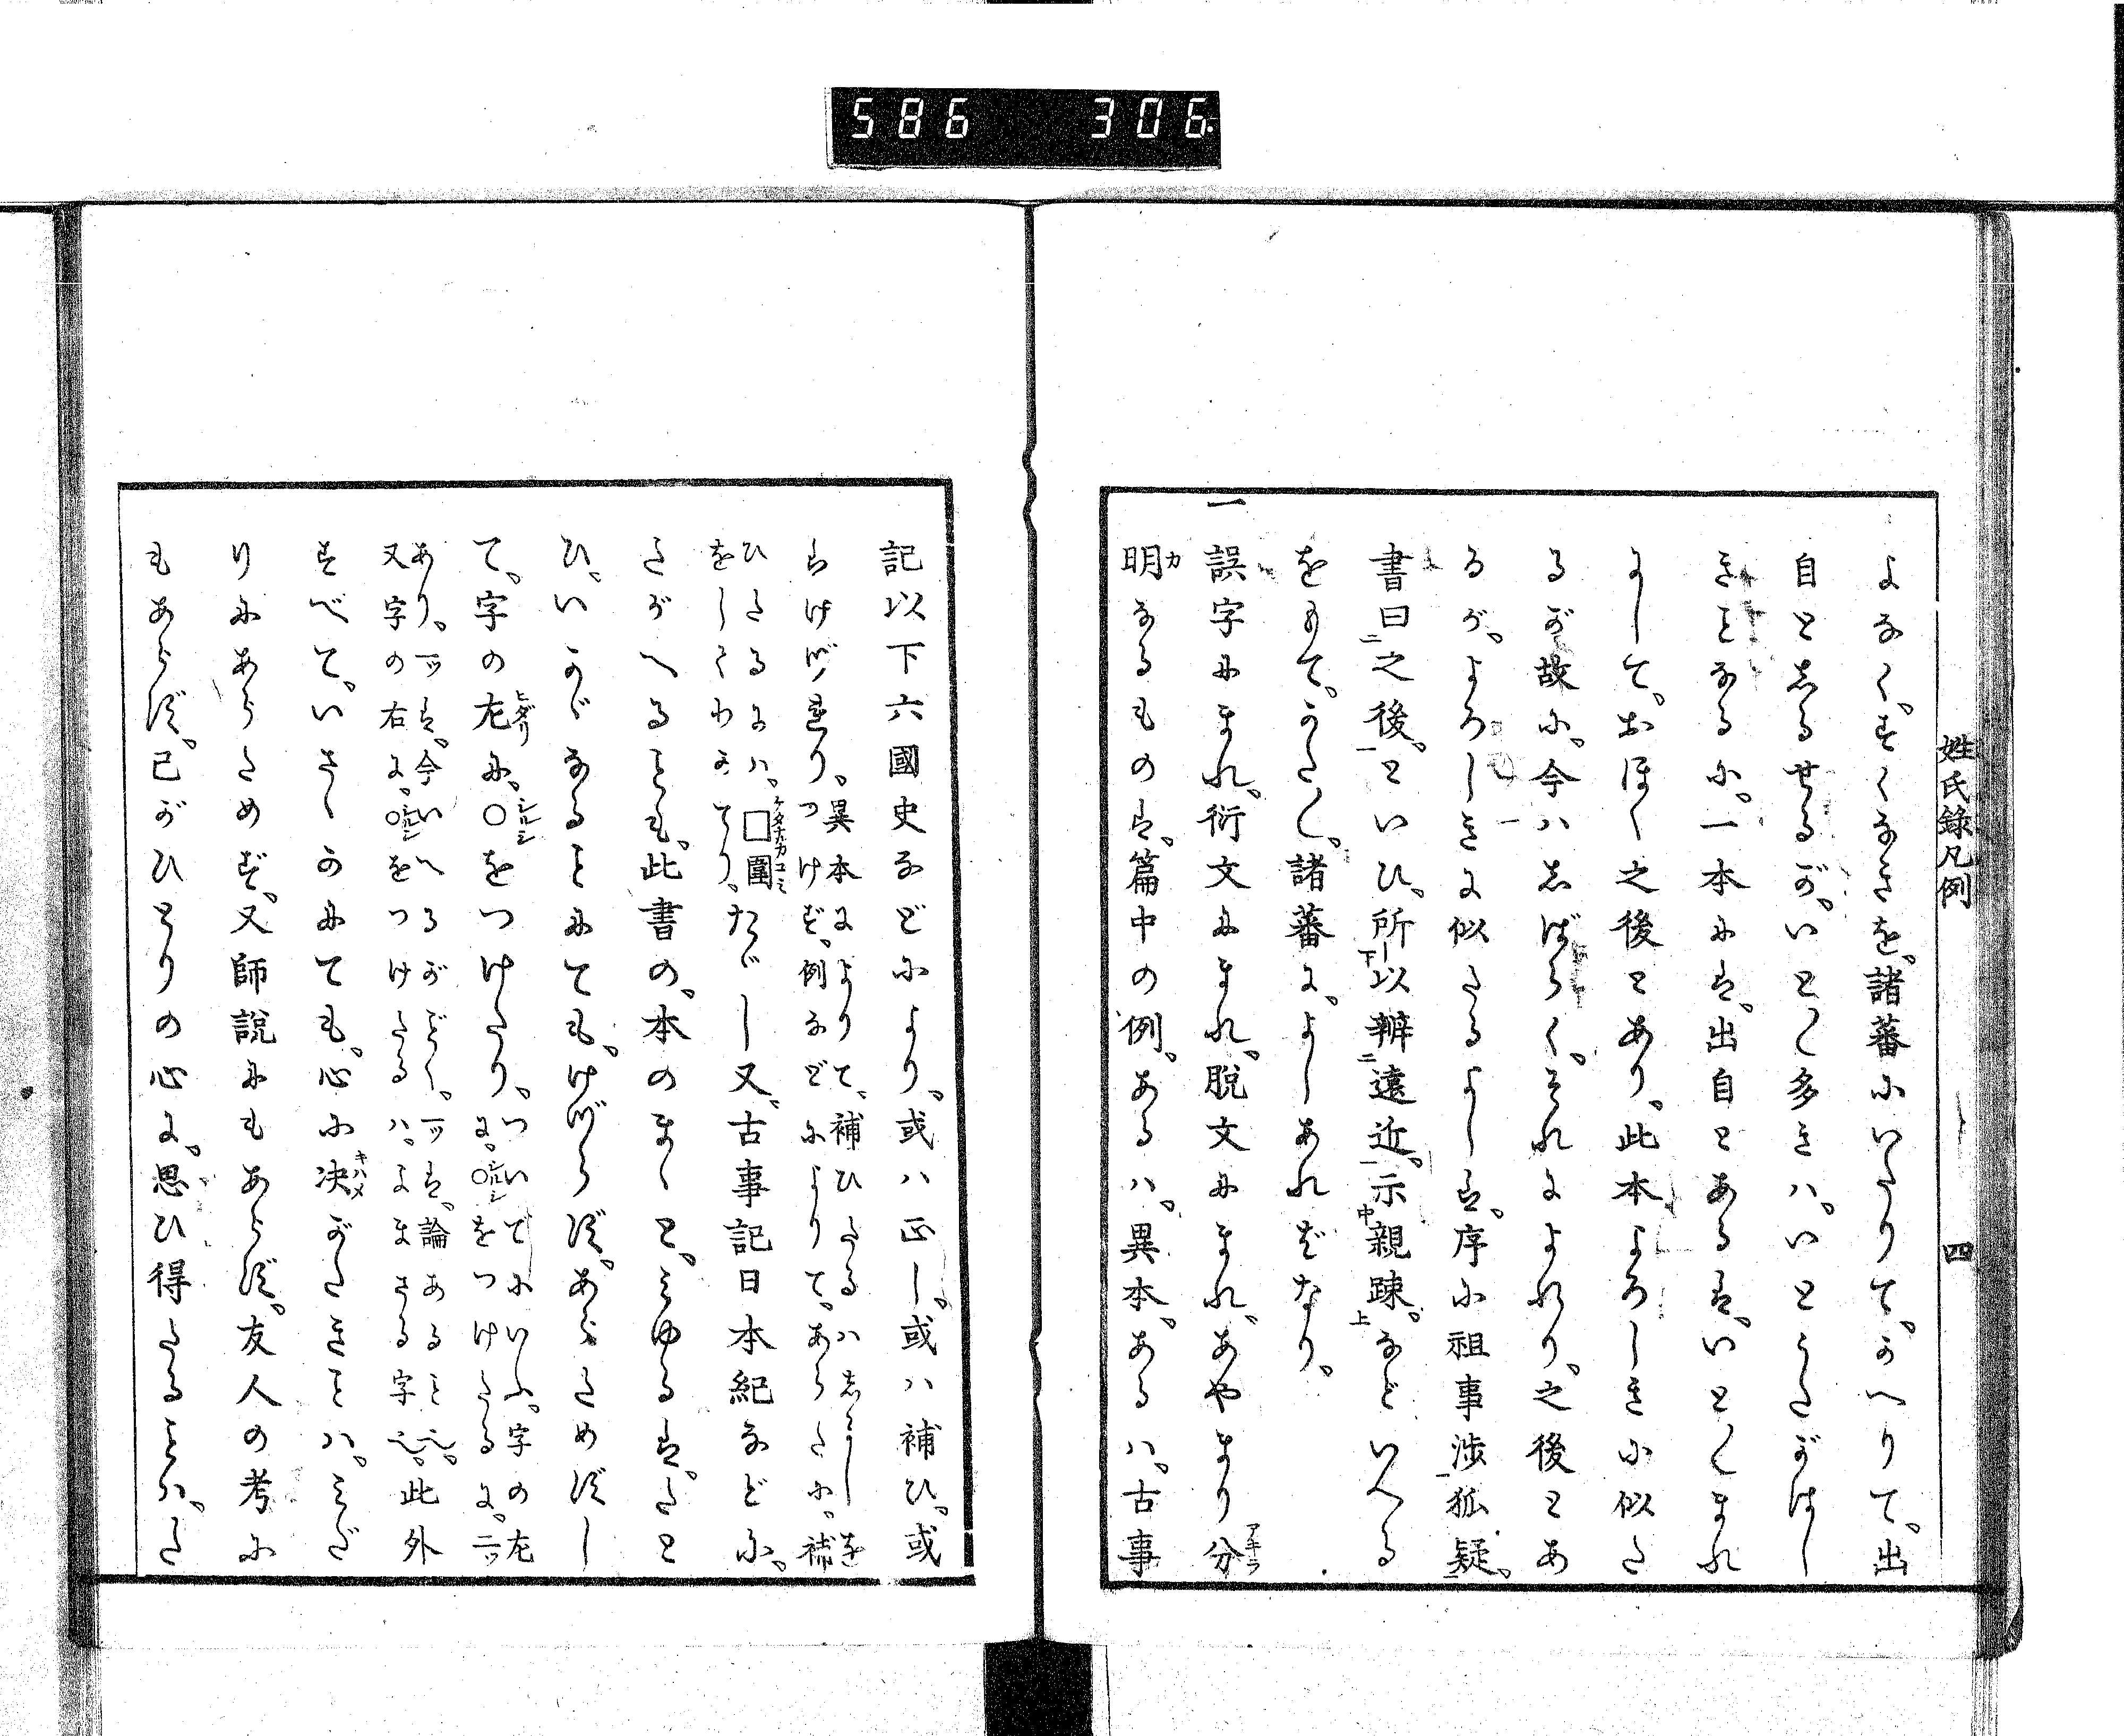 586 306
姓氏錄凡例 四
よなく。すくなきを。諸蕃にいたりて。かへりて。出
自としるせるが。いと〱多きハ。いとうたがはし
きことなるに。一本にハ。出自とあるハ。いと〱まれ
にして。おほく之後とあり。此本よろしきに似た
るが故に。今ハしばらく。それによれり。之後とあ
るが。よろしきに似たるよしハ。序に祖事渉狐疑。
書曰之後。といひ。所以辨遠近。示親疎。などいへる
をもて。うたへ。諸蕃に。よしあれバなり。
一誤字にまれ。衍文にまれ。脫文にまれ。あやまり分
明なるものハ。篇中の例。あるハ。異本。あるハ。古事
記以下六國史などにより。或ハ正し。或ハ補ひ。或
はけづれり。異本によりて、補ひたるハしるしを
つけず。例などによりて。あらたに。補
ひたるにハ。囗圍
をしてわかてり。たゞし又。古事記日本紀などに。
たがへることも。此書の。本のまゝと。みゆるハ。たと
ひ。いかゞなることにても。けづらず。あらためずし
て。字の左に。〇をつけたり。ついでにいふ。字の左
に。〇をつけたるに。二ツ
あり。一ツハ。今いへるがごとく。一ツハ。論あることへ。
又字の右に。〇をつけたるハ。よまざる字へ。此外
すべて。いさゝかにても。心に决がたきことハ。みだ
りにあらためず。又師說にもあらず。友人の考に
もあらず。己がひとりの心に。思ひ得たることハ。た